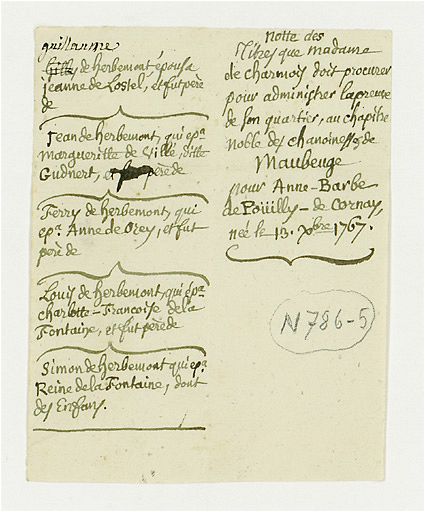 guillaume
Gille, de herbemont épousa
Jeanne de Lostel, et fut père
de
Jean de herbemont, qui epa.
Margueritte de Villé, ditte
Gudnert, et fut père de
Ferry de herbemont, qui
epa. Anne de Orey, et fut
père de
Louis de herbemont, qui epa.
charlotte-Francoise de la
Fontaine, et fut père de
Simon de herbemont qui epa.
Reine de la Fontaine, dont
des Enfans.
Notte des
Titres que madame
de charmois doit procurer
pour administrer la preuve
de son quartier, au chapitre
Noble des chanoinesses de
Maubeuge
pour Anne-Barbe
de Poüilly-de Cornay,
née le 13. Xbre 1767.
N 786-5